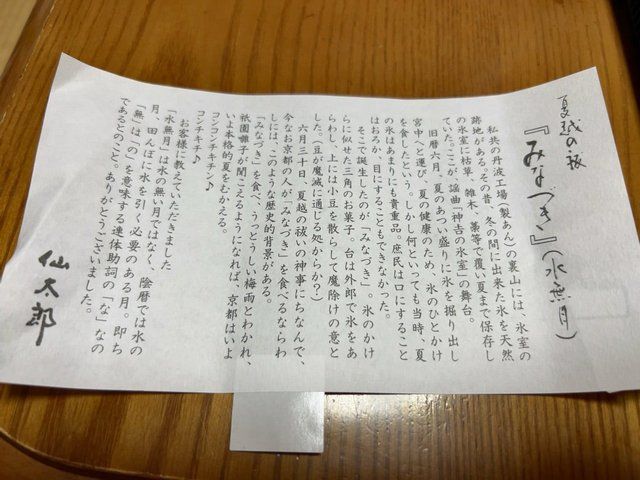 夏越の祓
『みなづき』(水無月)
私共の丹波工場(製あん)の裏山には、氷室の
跡地がある。その昔、冬の間に出来た氷を天然
の氷室に枯草、雑木、藁等で覆い夏まで保存し
ていた。ここが、謡曲「神吉の氷室」の舞台。
旧暦六月、夏のあつい盛りに氷を掘り出し
宮中へと運び、夏の健康のため、氷のひとかけ
を食したという。しかし何といっても当時、夏
の氷はあまりにも貴重品。庶民は口にすること
はおろか、目にすることもできなかった。
そこで誕生したのが「みなづき」。氷のかけ
らに似せた三角のお菓子。台は外郎で氷をあ
らわし、上には小豆を散らして魔除けの意と
した。(豆が魔滅に通じる処からか?)
六月三十日、夏越の祓いの神事にちなんで、
今なお京都の人が「みなづき」を食べるならわ
しには、このような歴史的背景がある。
「みなづき」を食べ、うっとうしい梅雨とわかれ、
祇園囃子が聞こえるようになれば、京都はいよ
いよ本格的夏をむかえる。
コンコンチキチン♪
コンチキチキ♪
お客様に教えていただきました
「水無月」は水の無い月ではなく、陰暦では水の
月、田んぼに水を引く必要のある月。即ち
「無」は「の」を意味する連体助詞の「な」なの
であるとのこと。ありがとうございました。
仙太郎